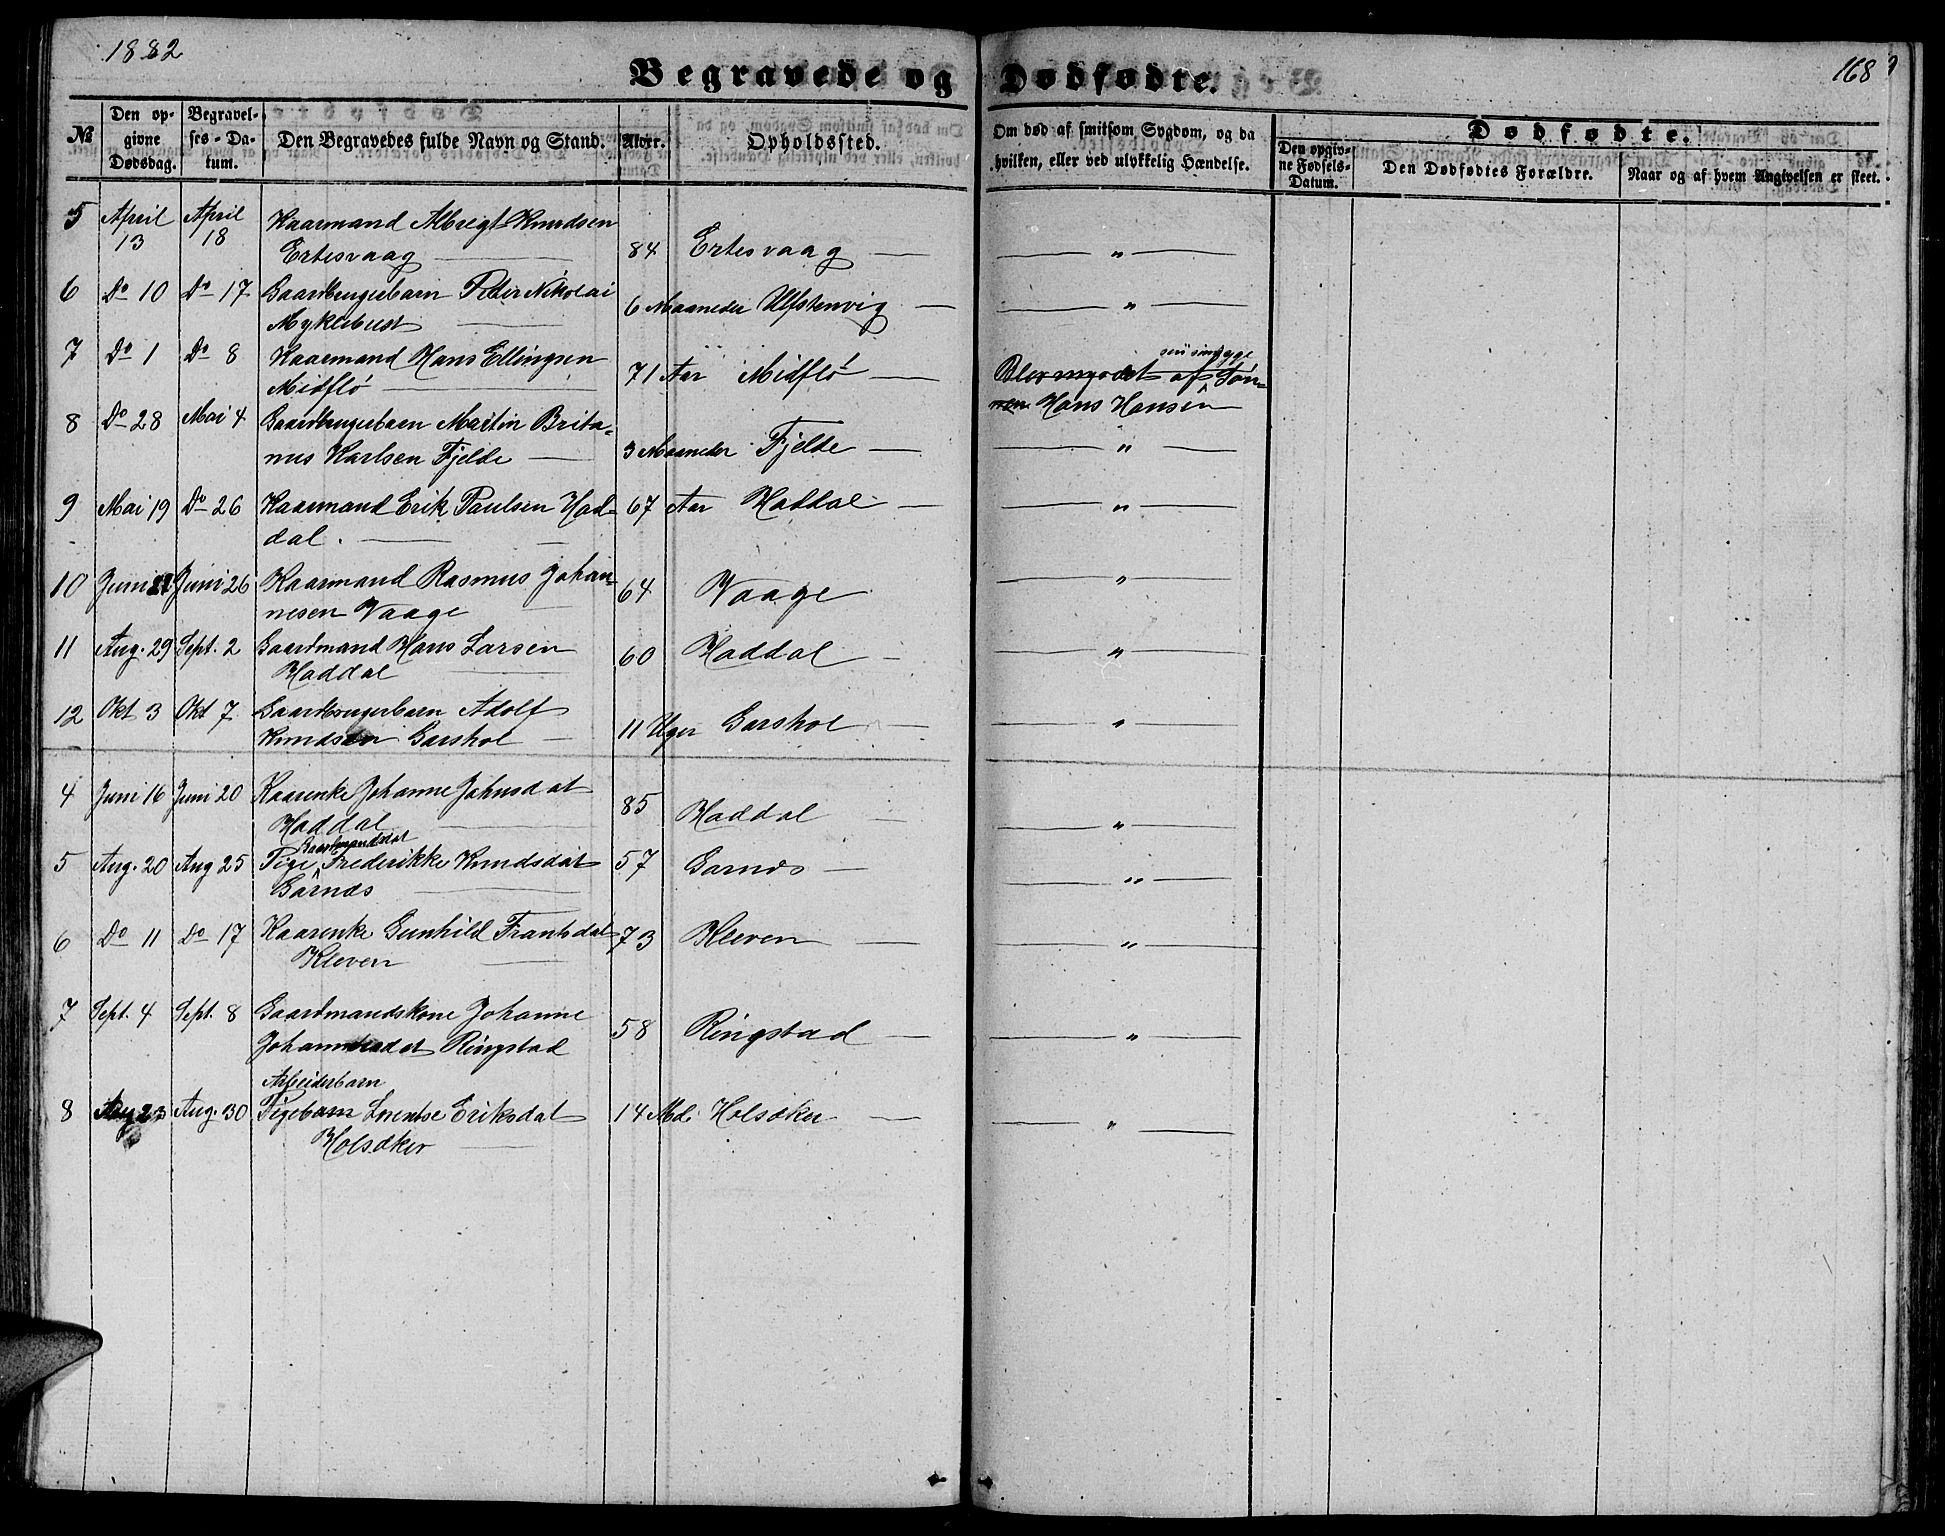 1882
168
Begravede og Dødfødte.
№
Den opgivne Dødsdag.
Begravelses-Datum.
Den Begravedes fulde Navn og Stand.
Alder.
Opholdssted.
Om død af smitsom Sygdom, og da hvilken, eller ved ulykkelig Hændelse.
Dødfødte.
Den opgivne Fødsels-Datum.
Den Dødfødtes Forældre.
Naar og af hvem Angivelsen er skeet.
5 April 13 April 18 Kaarmand Albregt Knudsen
Ertesvaag — 84 Ertesvaag — — " —
6 Do 10 Do 17 Gaardbrugerbarn Peder Nikolai
Myklebust — 6 Maaneder Ulfstenvig — — " —
7 Do 1 Do 8 Kaarmand Hans Ellingsen
Midflö — 71 Aar Midflö — Blev myrdet af Søn-
nen Hans Hansen
8 Do 28 Mai 4 Gaardbrugerbarn Martin Brita-
nus Karlsen Fjelde — 3 Maaneder Fjelde — — " —
9 Mai 19 Do 26 Kaarmand Erik Paulsen Had-
dal. — 67 Aar Haddal — — " —
10 Juni 21 Juni 26 Kaarmand Rasmus Johan-
nesen Vaage — 64 Vaage — " —
11 Aug. 29 Sept. 2 Gaardmand Hans Larsen
Haddal — 60 Haddal — — " —
12 Okt 3 Okt 7 Gaardbrugerbarn Adolf
Knudsen Garshol — 11 Uger Garshol — — " —
4 Juni 16 Juni 20 Kaarenke Johanne Johnsdat
Haddal — 85 Haddal — — " —
Gaardmandsdat
5 Aug. 20 Aug 25 Pige Frederikke Knudsdat
Garnæs — 57 Garnæs — — " —
6 Do 11 Do 17 Kaarenke Gunhild Frantsdat
Kleven — 73 Kleven — — " —
7 Sept. 4 Sept. 8 Gaardmandskone Johanne
Johannesdat Ringstad 58 Ringstad — — " —
Arbeiderbarn
8 Aug 23 Aug. 30 Pigebarn Lorentse Eriksdat
Holsæker — 14 Md. Holsæker — — " —